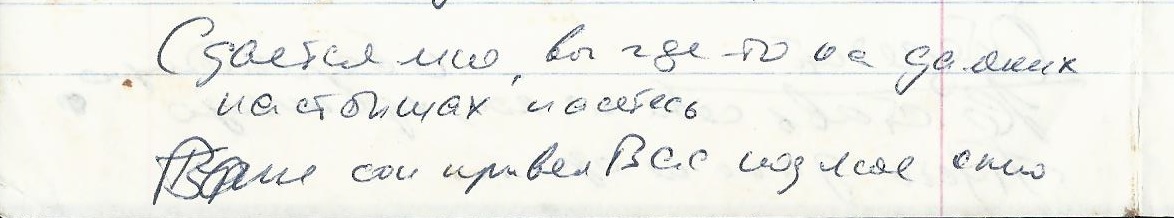 Сдается мне, вы где-то на далеких
пастбищах пасетесь
Ваш сон привел Вас под мое окно